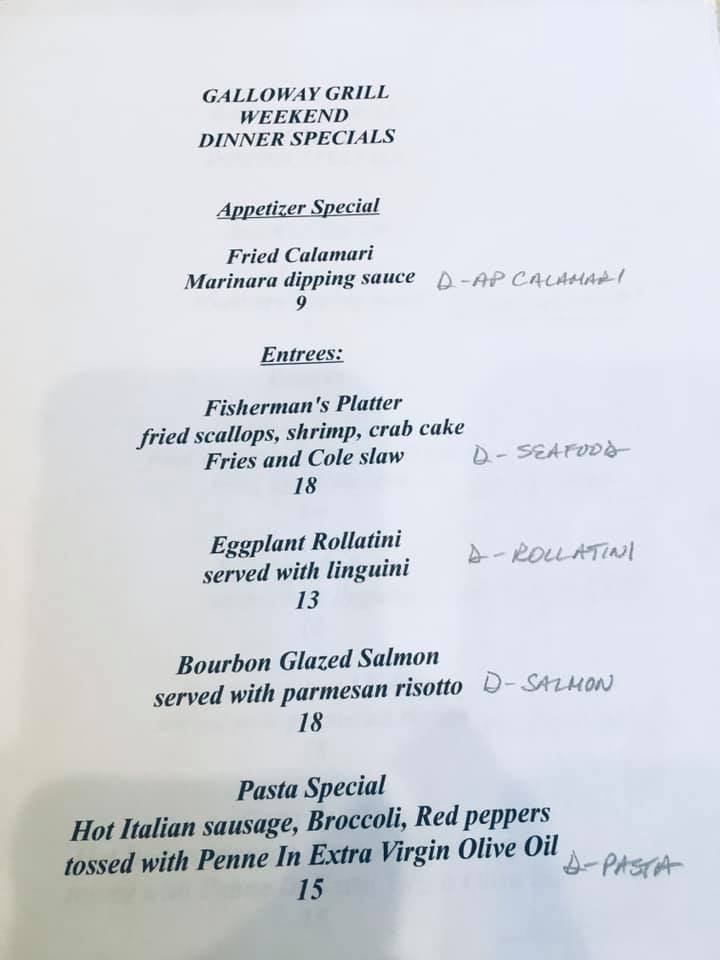 GALLOWAY GRILL
WEEKEND
DINNER SPECIALS
Appetizer Special
Fried Calamari
Marinara dipping sauce D-AP CALAMARI
9
Entrees:
Fisherman's Platter
fried scallops, shrimp, crab cake
Fries and Cole slaw D-SEAFOOD
18
Eggplant Rollatini D-ROLLATINI
served with linguini
13
Bourbon Glazed Salmon
served with parmesan risotto D-SALMON
18
Pasta Special
Hot Italian sausage, Broccoli, Red peppers
tossed with Penne In Extra Virgin Olive Oil D-PASTA
15